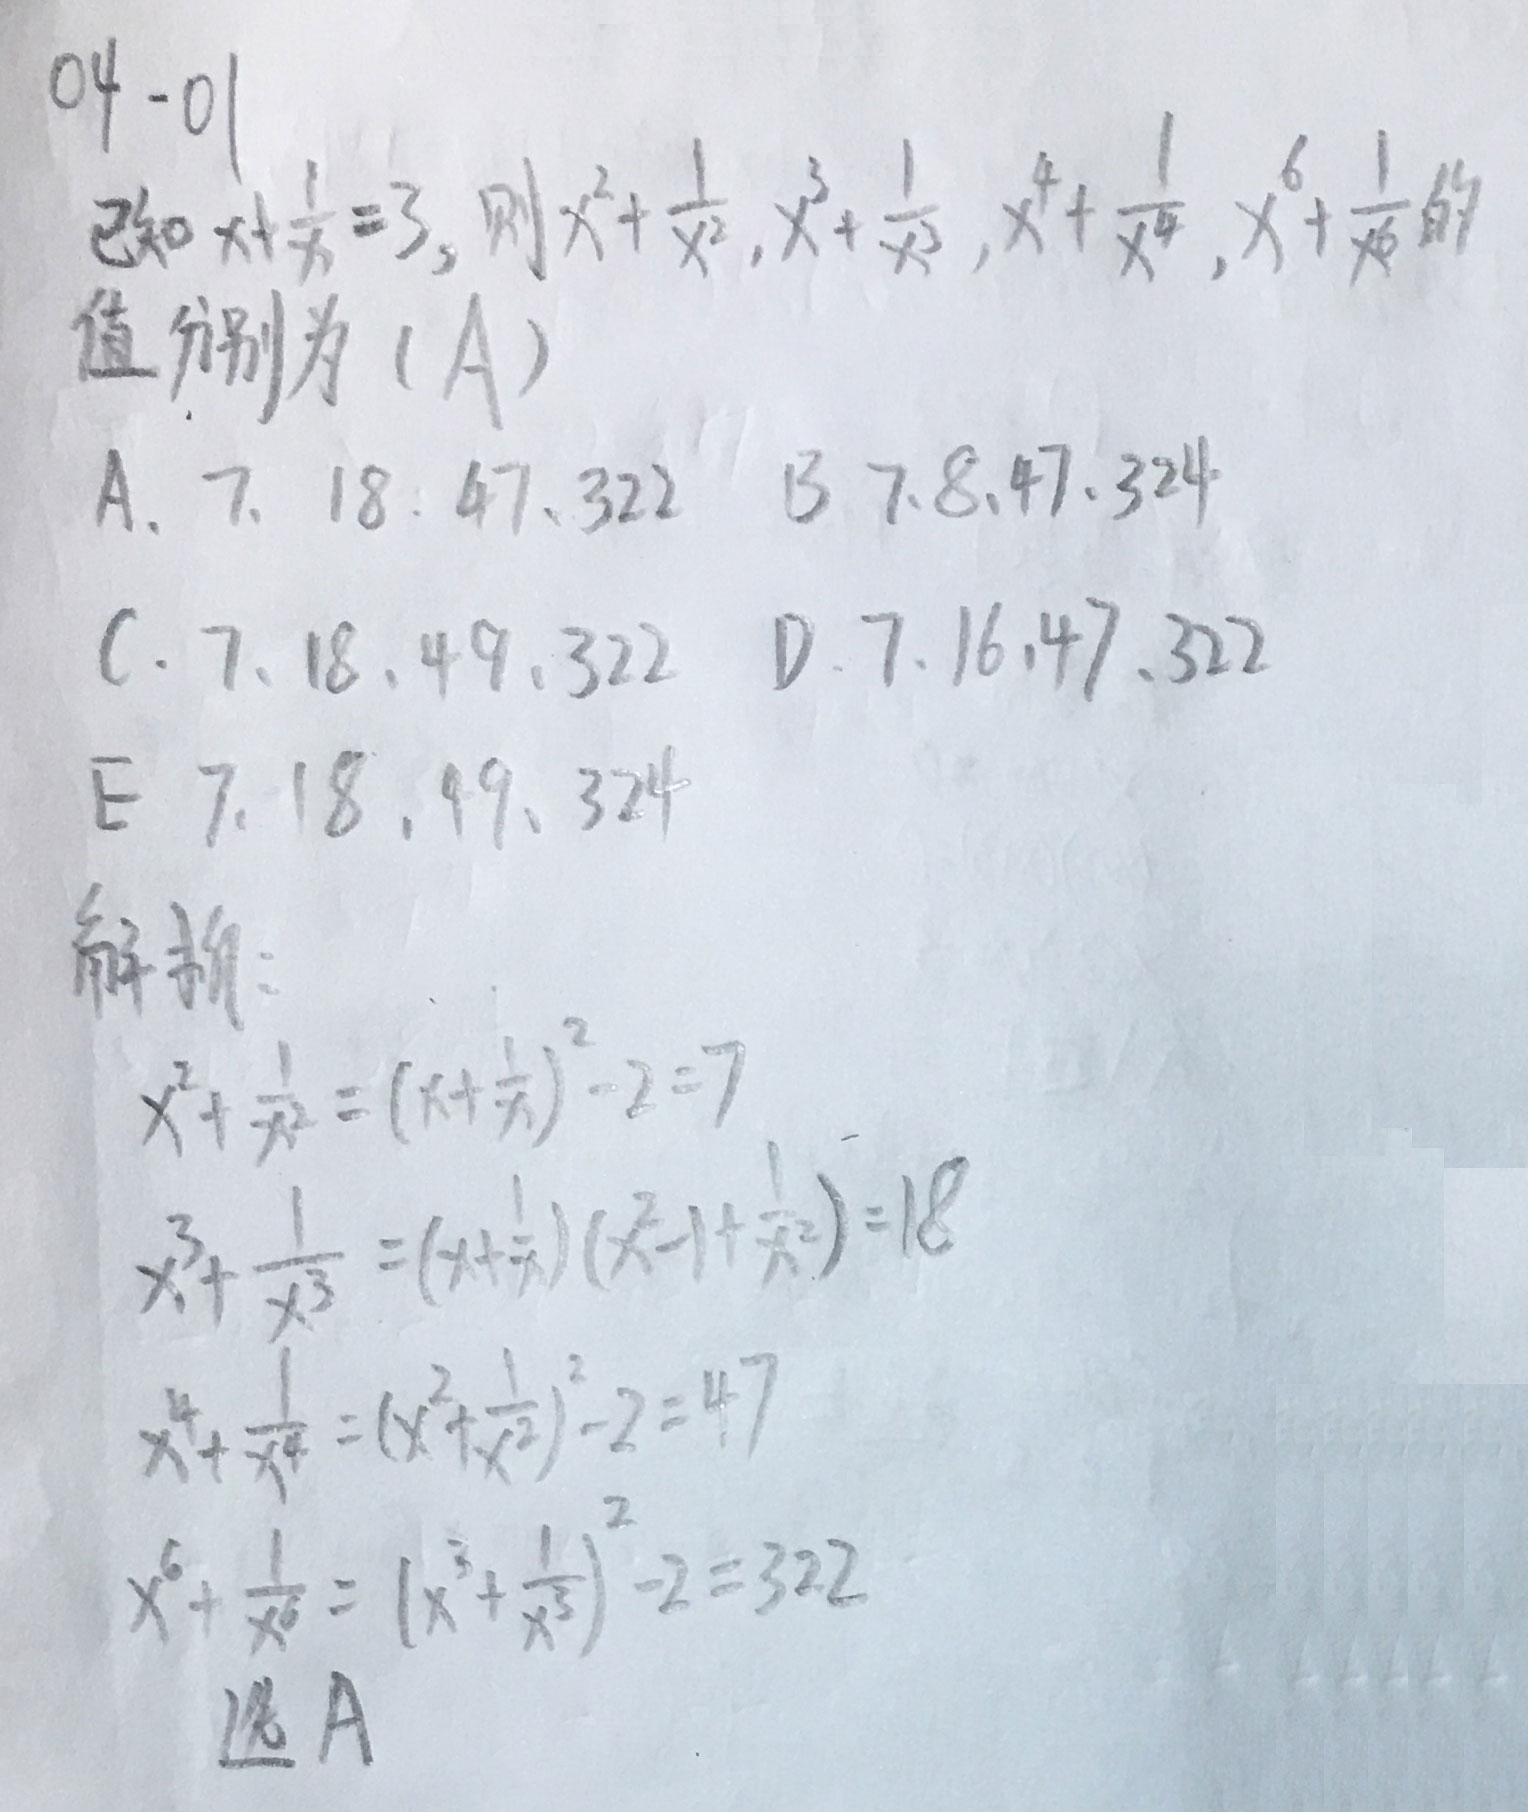 04-01
已知 x+1/x=3, 则 x²+1/x², x³+1/x³, x⁴+1/x⁴, x⁶+1/x⁶ 的
值分别为 (A)
A. 7、18、47、322 B 7、8、47、324
C. 7、18、49、322 D. 7、16、47、322
E 7、18、49、324
解析:
x²+1/x²=(x+1/x)²-2=7
x³+1/x³=(x+1/x)(x²-1+1/x²)=18
x⁴+1/x⁴=(x²+1/x²)²-2=47
x⁶+1/x⁶=(x³+1/x³)²-2=322
选A